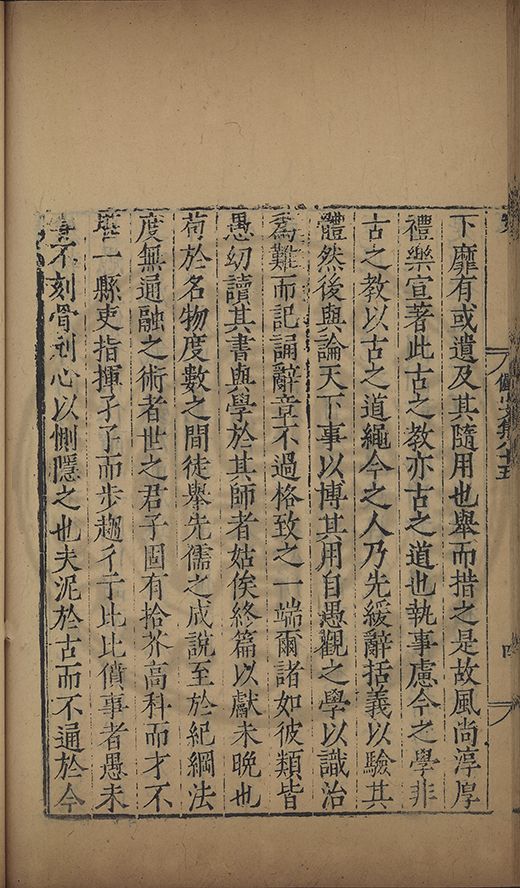 下靡有或遺及其隨用也舉而措之是故風尚淳厚
禮樂宣著此古之教亦古之道也執事慮今之學非
古之教以古之道繩今之人乃先緩辭括義以驗其
體然後與論天下事以博其用自愚觀之學以識治
爲難而記誦辭章不過格致之一端爾諸如彼類皆
愚幼讀其書與學於其師者姑俟終篇以獻未晚也
苟於名物度數之間徒舉先儒之成說至於紀綱法
度無通融之術者世之君子固有拾芥高科而才不
一縣吏指揮孑孑而步趨彳亍比比僨事者愚未
不刻骨刲心以惻隱之也夫泥於古而不通於今
四